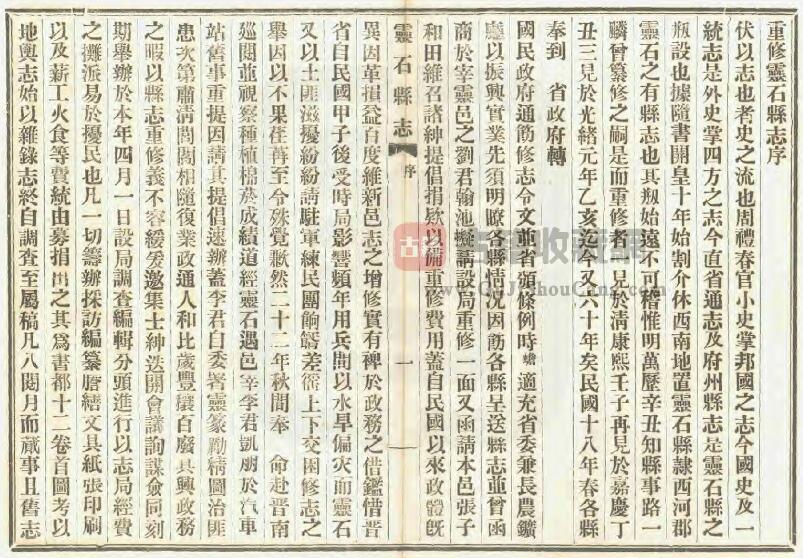 重修靈石縣志序
伏以志也者史之流也周禮春官小史掌邦國之志今國史及一
統志是外史掌四方之志今直省通志及府州縣志是靈石縣之
瓶設也據隨書開皇十年始割介休西南地置靈石縣隸西河郡
靈石之有縣志也其瓶始遠不可稽惟明萬歷辛丑知縣事路一
麟曾纂修之嗣是而重修者一見於清康熙壬子再見於嘉慶丁
丑三見於光緒元年乙亥迄今又六十年矣民國十八年春各縣
奉到 省政府轉
國民政府通飭修志令文並省頒條例時蟾適充省委兼長農鑛
廳以振興實業先須明瞭各縣情況因飭各縣呈送縣志並曾函
商於宰靈邑之劉君翰池擬請設局重修一面又函請本邑張子
和田維召諸紳提倡捐欵以備重修費用蓋自民國以來政體旣
靈石縣志 序 一
異因革損益百度維新邑志之增修實有裨於政務之借鑑惜晋
省自民國甲子後受時局影響頻年用兵間以水旱偏灾而靈石
又以土匪滋擾紛紛請駐軍練民團餉辭差徭上下交困修志之
舉因以不果荏苒至今殊覺歉然二十二年秋間奉 命赴晋南
廵閱並視察種植棉菸成績道經靈石遇邑宰李君凱朋於汽車
站舊事重提因請其提倡速辦蓋李君自委署靈篆勵精圖治匪
患次第肅清閭閻相隨復業政通人和比歲豐穰百廢具興政務
之暇以縣志重修義不容緩爰邀集士紳迭開會議詢謀僉同刻
期舉辦於本年四月一日設局調查編輯分頭進行以志局經費
之攤派易於擾民也凡一切籌辦採訪編纂謄繕文具紙張印刷
以及薪工火食等費統由募捐出之其爲書都十二卷首圖考以
地輿志始以雜錄志終自調查至屬稿凡八閱月而蕆事且舊志
古籍收藏網